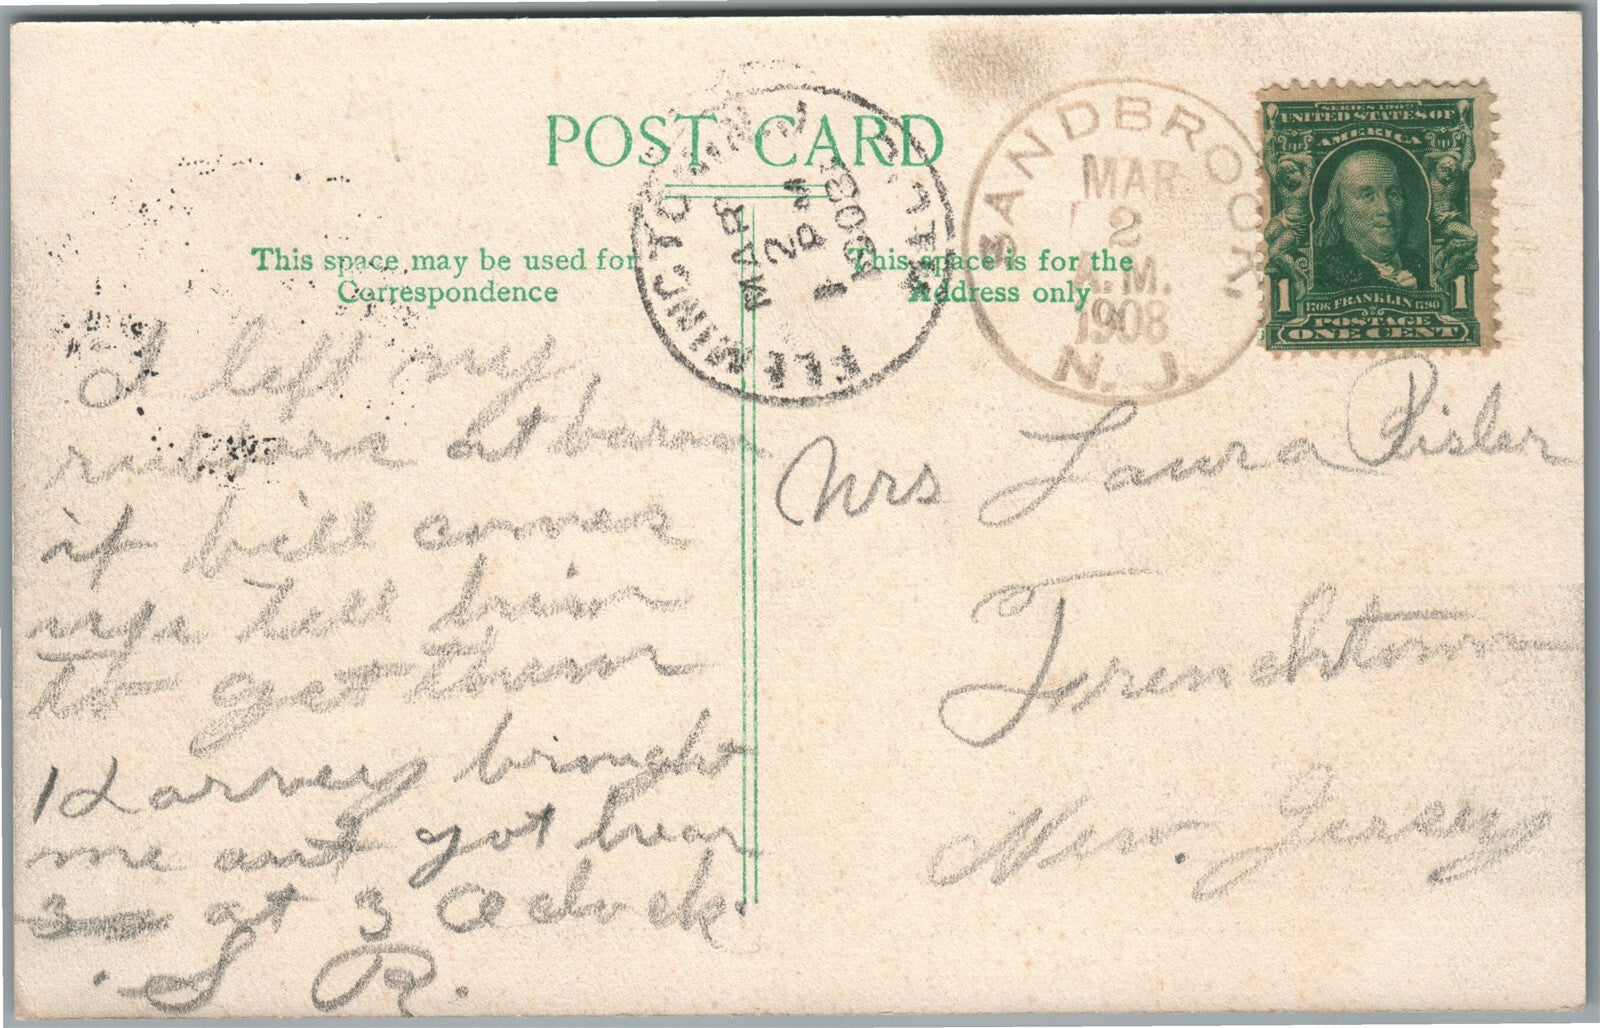 POST CARD
This space may be used for
Correspondence
This space is for the
Address only
FLEMINGTON N.J.
MAR
2
1908
SANDBROOK,
MAR
2
A.M.
1908
N. J.
SERIES 1902
UNITED STATES OF
AMERICA
1 1706 FRANKLIN 1790 1
POSTAGE
ONE CENT
I left my
rubbers at barn
if bill comes
tell him
to get them
Harvey brought
me out got hear
at 3 Oclock
S R.
Mrs Laura Risler
Frenchtown
New. Jersey